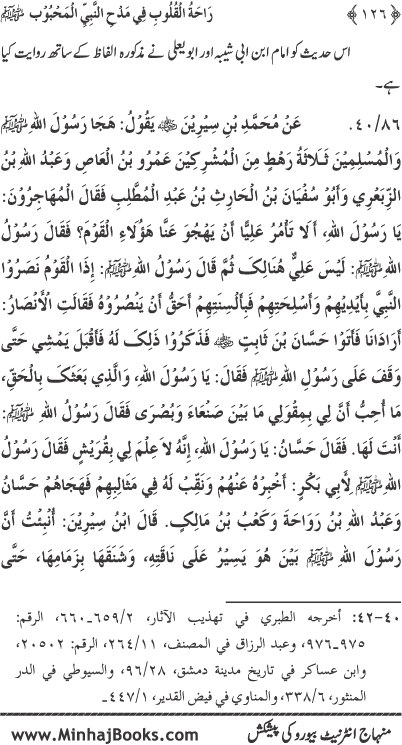 ﴿١٢٦﴾ رَاحَةُ الْقُلُوبِ فِي مَدْحِ النَّبِيِّ الْمَحْبُوْبِ ﷺ
اس حدیث کو امام ابن ابی شیبہ اور ابو یعلی نے مذکورہ الفاظ کے ساتھ روایت کیا
ہے۔
٤٠/٨٦. عَنْ مُحَمَّدِ بْنِ سِيْرِيْنَ ﷺ يَقُوْلُ: هَجَا رَسُوْلَ اللهِ ﷺ
وَالْمُسْلِمِيْنَ ثَلَاثَةُ رَهْطٍ مِنَ الْمُشْرِكِيْنَ عَمْرُو بْنُ الْعَاصِ وَعَبْدُ اللهِ بْنُ
الزِّبَعْرِي وَأَبُو سُفْيَانَ بْنُ الْحَارِثِ بْنِ عَبْدِ الْمُطَّلِبِ فَقَالَ الْمُهَاجِرُوْنَ:
يَا رَسُوْلَ اللهِ، أَلَا تَأْمُرُ عَلِيًّا أَنْ يَهْجُوَ عَنَّا هَؤُلَاءِ الْقَوْمَ؟ فَقَالَ رَسُوْلُ
اللهِ ﷺ: لَيْسَ عَلِيٌّ هُنَالِكَ ثُمَّ قَالَ رَسُوْلُ اللهِ ﷺ: إِذَا الْقَوْمُ نَصَرُوْا
النَّبِيَّ بِأَيْدِيْهِمْ وَأَسْلِحَتِهِمْ فَبِأَلْسِنَتِهِمْ أَحَقُّ أَنْ يَنْصُرُوْهُ فَقَالَتِ الْأَنْصَارُ:
أَرَادَنَا فَأَتَوْا حَسَّانَ بْنَ ثَابِتٍ فَذَكَرُوْا ذَلِكَ لَهُ فَأَقْبَلَ يَمْشِي حَتَّى
وَقَفَ عَلَى رَسُوْلِ اللهِ ﷺ فَقَالَ: يَا رَسُوْلَ اللهِ، وَالَّذِي بَعَثَكَ بِالْحَقِّ،
مَا أُحِبُّ أَنَّ لِي بِمِقْوَلِي مَا بَيْنَ صَنْعَاءَ وَبُصْرَى فَقَالَ رَسُوْلُ اللهِ ﷺ:
أَنْتَ لَهَا. فَقَالَ حَسَّانُ: يَا رَسُوْلَ اللهِ، إِنَّهُ لَا عِلْمَ لِي بِقُرَيْشٍ فَقَالَ رَسُوْلُ
اللهِ ﷺ لِأَبِي بَكْرٍ: أَخْبِرْهُ عَنْهُمْ وَنَقِّبْ لَهُ فِي مَثَالِبِهِمْ فَهَجَاهُمْ حَسَّانُ
وَعَبْدُ اللهِ بْنُ رَوَاحَةَ وَكَعْبُ بْنُ مَالِكٍ. قَالَ ابْنُ سِيْرِيْنَ: أُنْبِئْتُ أَنَّ
رَسُوْلَ اللهِ ﷺ بَيْنَ هُوَ يَسِيْرُ عَلَى نَاقَتِهِ، وَشَنَقَهَا بِزِمَامِهَا، حَتَّى
٤٠-٤٢: أخرجه الطبري في تهذيب الآثار، ٢/٦٥٩-٦٦٠، الرقم:
٩٧٥-٩٧٦، وعبد الرزاق في المصنف، ١١/٢٦٤، الرقم: ٢٠٥٠٢،
وابن عساكر في تاريخ مدينة دمشق، ٢٨/٩٦، والسيوطي في الدر
المنثور، ٦/٣٣٨، والمناوي في فيض القدير، ١/٤٤٧-
منہاج انٹرنیٹ بیورو کی پیشکش www.MinhajBooks.com